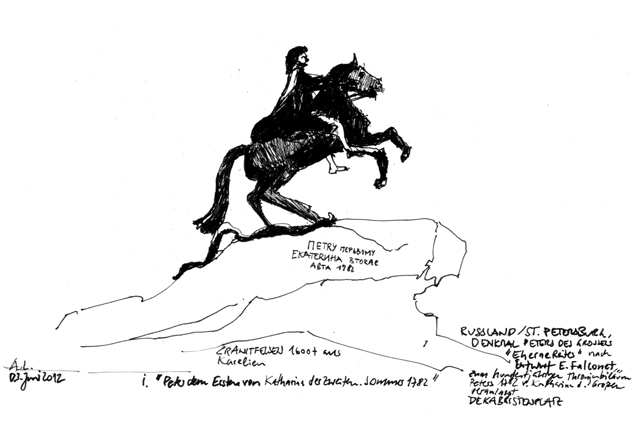 ПЕТРУ первому
ЕКАТЕРИНА вторая
лета 1782
GRANITFELSEN 1600t aus
Karelien
A.L.
03. Juni 2012
1. "Peter dem Ersten von Katharina der Zweiten. Sommer 1782"
RUSSLAND/ST. PETERSBURG,
DENKMAL PETERS DES GROSSEN
"Eherne Reiter" nach
Entwurf E. Falconet
zum hundertjährigen Thronjubiläum
Peters 1782 v. Katharina d. Großen
veranlasst
DEKABRISTENPLATZ